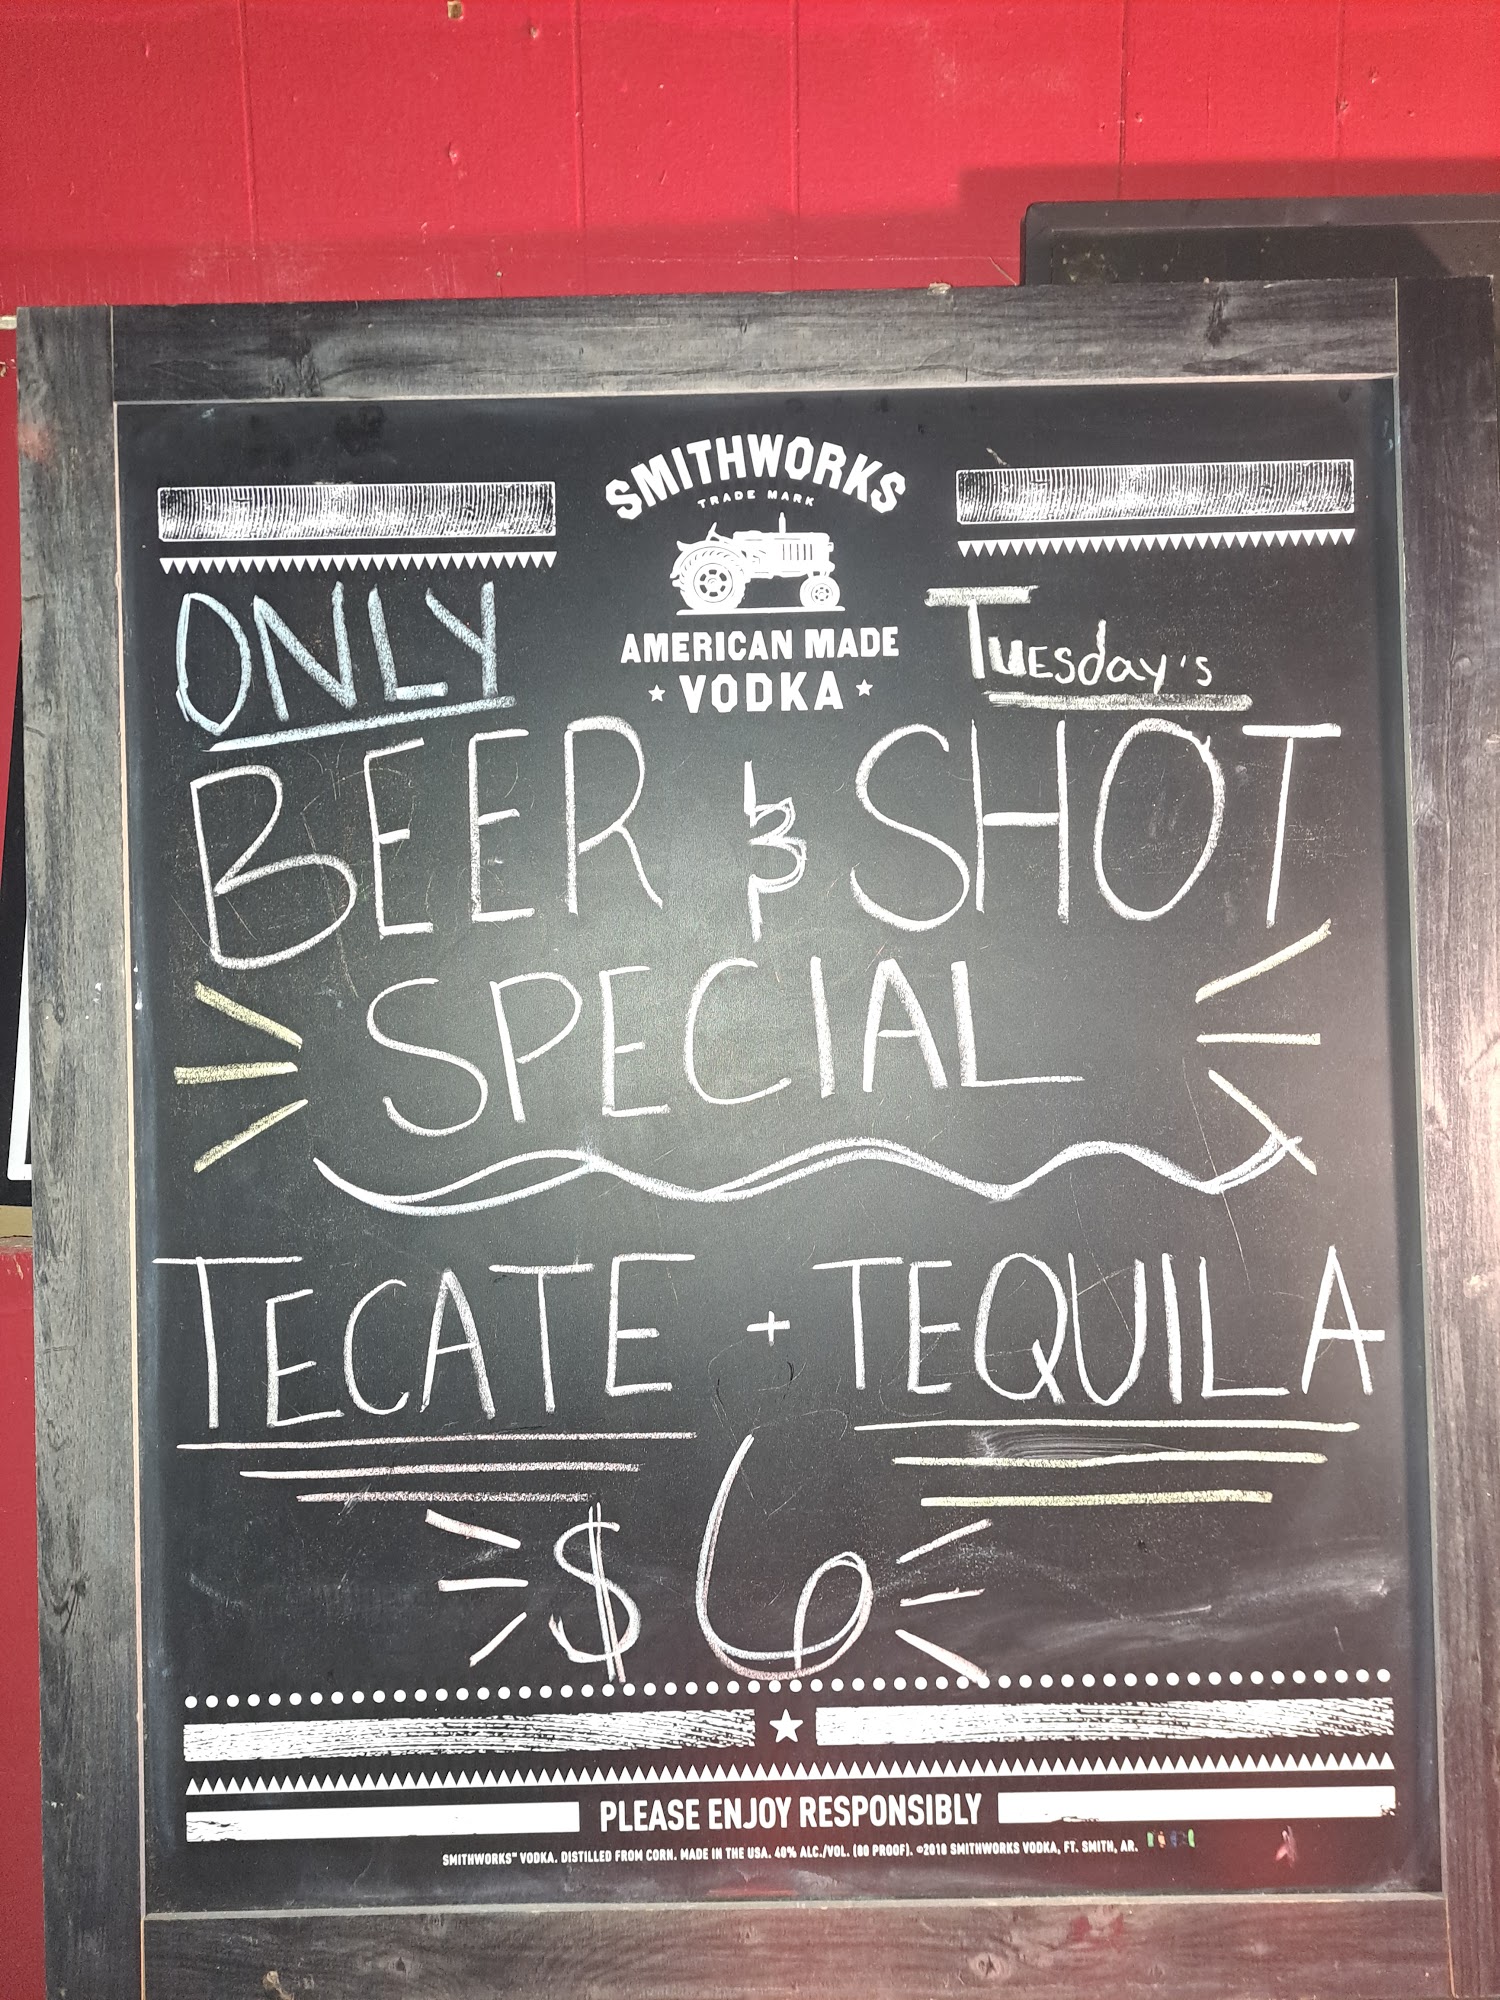 SMITHWORKS
TRADE MARK
AMERICAN MADE
VODKA
ONLY Tuesday's
BEER & SHOT
SPECIAL
TECATE + TEQUILA
$6
PLEASE ENJOY RESPONSIBLY
SMITHWORKS™ VODKA. DISTILLED FROM CORN. MADE IN THE USA. 40% ALC./VOL. (80 PROOF). ©2018 SMITHWORKS VODKA, FT. SMITH, AR.